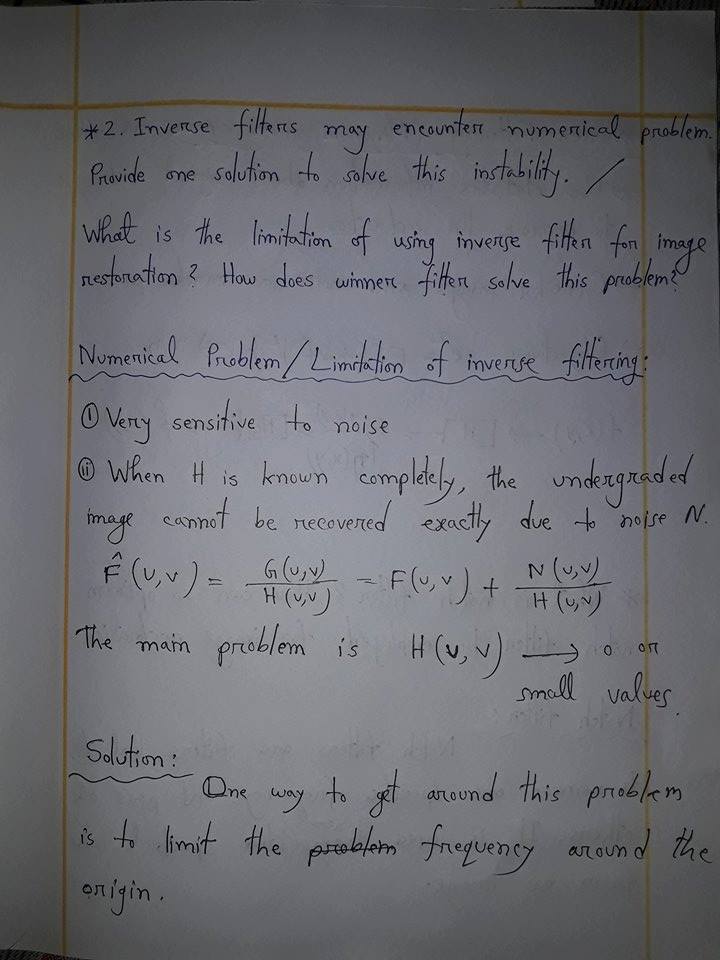 *2. Inverse filters may encounter numerical problem.
Provide one solution to solve this instability. /
What is the limitation of using inverse filter for image
restoration? How does winner filter solve this problem?
Numerical Problem/Limitation of inverse filtering:
(i) Very sensitive to noise
(ii) When H is known completely, the undergraded
image cannot be recovered exactly due to noise N.
F̂(u,v) = G(u,v)/H(u,v) = F(u,v) + N(u,v)/H(u,v)
The main problem is H(u,v) → 0 or
small values.
Solution:
One way to get around this problem
is to limit the ~~problem~~ frequency around the
origin.